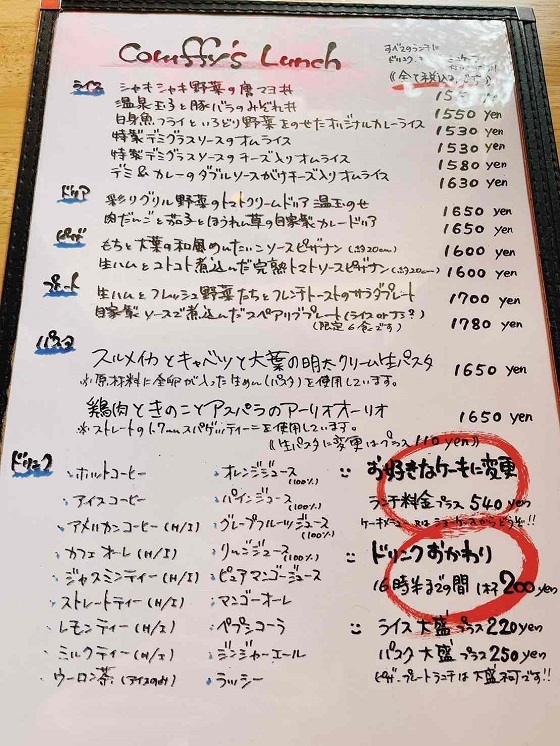 Comffy's Lunch
すべてのランチに
ドリンク
(全て税込み
ライス シャキシャキ野菜の唐マヨ丼
温泉玉子と豚バラのみぞれ丼 1550 yen
白身魚フライといろどり野菜をのせたオリジナルカレーライス 1530 yen
特製デミグラスソースのオムライス 1530 yen
特製デミグラスソースのチーズ入りオムライス 1580 yen
デミ&カレーのダブルソースがけチーズ入りオムライス 1630 yen
ドリア 彩りグリル野菜のトマトクリームドリア 温玉のせ 1650 yen
肉だんごと茄子とほうれん草の自家製カレードリア 1650 yen
ピザ もちと大葉の和風めんたいこソースピザナン (約20cm) 1600 yen
生ハムとコトコト煮込んだ完熟トマトソースピザナン (約20cm) 1600 yen
プレート 生ハムとフレッシュ野菜たちとフレンチトーストのサラダプレート 1700 yen
自家製ソースで煮込んだスペアリブプレート (ライス or ナン?) 1780 yen
(限定6食です)
パスタ
スルメイカとキャベツと大葉の明太クリーム生パスタ 1650 yen
※原材料に全卵が入った生めん(パスタ)を使用しています。
鶏肉ときのことアスパラのアーリオオーリオ 1650 yen
※ストレートの1.7mmスパゲッティーニを使用しています。
《生パスタに変更はプラス110yen》
ドリンク
・ホットコーヒー
・アイスコーヒー
・アメリカンコーヒー (H/I)
・カフェオーレ (H/I)
・ジャスミンティー (H/I)
・ストレートティー (H/I)
・レモンティー (H/I)
・ミルクティー (H/I)
・ウーロン茶 (アイスのみ)
・オレンジジュース (100%)
・パインジュース (100%)
・グレープフルーツジュース (100%)
・りんごジュース (100%)
・ピュアマンゴージュース
・マンゴーオーレ
・ペプシコーラ
・ジンジャーエール
・ラッシー
お好きなケーキに変更
ランチ料金プラス 540 yen
ケーキメニュー又はショーケースからどうぞ!!
ドリンクおかわり
16時半までの間 1杯 200 yen
ライス大盛プラス 220 yen
パスタ大盛プラス 250 yen
ピザ・プレートランチは大盛不可です!!